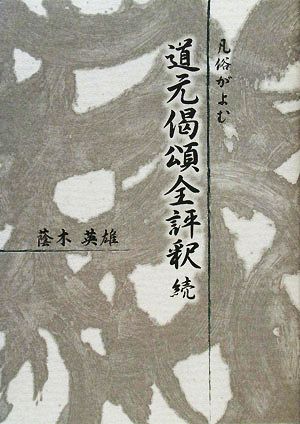 凡俗がよむ
道元偈頌全評釈 続
蔭木 英雄